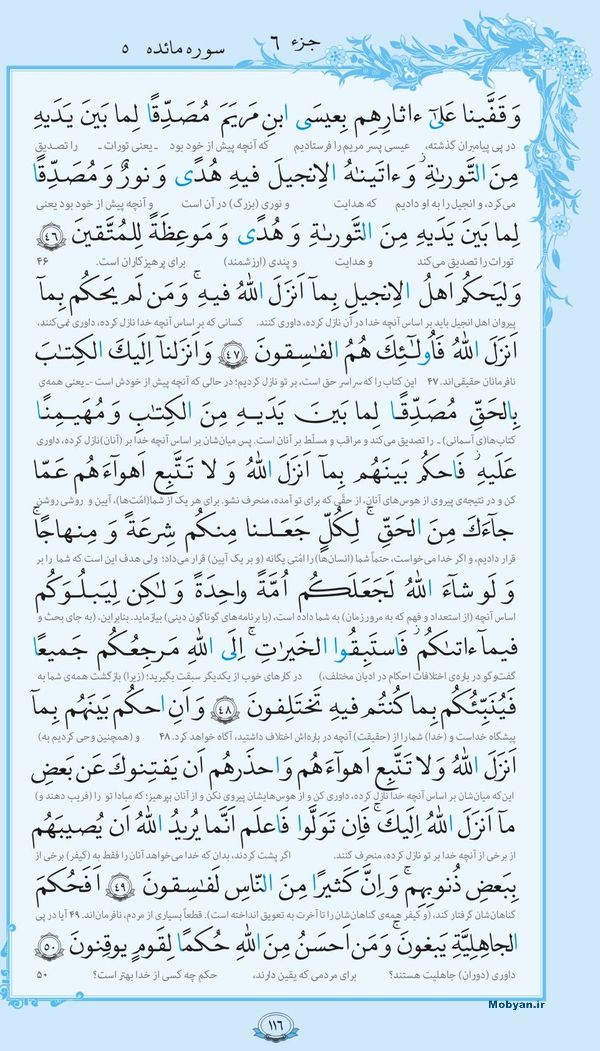 جزء ۶ سوره مائده ۵
وَ قَفَّینا عَلیٰٓ ءاثارِهِم بِعیسَی ابنِ مَریَمَ مُصَدِّقًا لِما بَینَ یَدَیهِ
در پی پیامبران گذشته، عیسی پسر مریم را فرستادیم که آنچه پیش از خود بود ـ یعنی تورات ـ را تصدیق
مِنَ التَّوریٰةِ وَ ءاتَینٰهُ الاِنجیلَ فیهِ هُدًی وَ نورٌ وَ مُصَدِّقًا
می‌کرد، و انجیل را به او دادیم که هدایت و نوری (بزرگ) در آن است و آنچه پیش از خود بود یعنی
لِما بَینَ یَدَیهِ مِنَ التَّوریٰةِ وَ هُدًی وَ مَوعِظَةً لِلمُتَّقینَ ﴿۴۶﴾
تورات را تصدیق می‌کند و هدایت و پندی (ارزشمند) برای پرهیزکاران است. ۴۶
وَلیَحکُم اَهلُ الاِنجیلِ بِمآ اَنزَلَ اللهُ فیهِ ۚ وَ مَن لَم یَحکُم بِمآ
پیروان اهل انجیل باید بر اساس آنچه خدا در آن نازل کرده، داوری کنند. کسانی که بر اساس آنچه خدا نازل کرده، داوری نمی‌کنند،
اَنزَلَ اللهُ فَاُولٰٓئِکَ هُمُ الفٰسِقونَ ﴿۴۷﴾ وَ اَنزَلنآ اِلَیکَ الکِتٰبَ
نافرمانان حقیقی‌اند. ۴۷ این کتاب را که سراسر حق است، بر تو نازل کردیم؛ در حالی که آنچه پیش از خودش است ـ یعنی همه‌ی
بِالحَقِّ مُصَدِّقًا لِما بَینَ یَدَیهِ مِنَ الکِتٰبِ وَ مُهَیمِنًا
کتاب‌ها(ی آسمانی) ـ را تصدیق می‌کند و مراقب و مسلّط بر آنان است. پس میان‌شان بر اساس آنچه خدا بر (آنان) نازل کرده، داوری
عَلَیهِ ۖ فَاحکُم بَینَهُم بِمآ اَنزَلَ اللهُ وَ لا تَتَّبِع اَهوآءَهُم عَمّا
کن و در نتیجه‌ی پیروی از هوس‌های آنان، از حقّی که برای تو آمده، منحرف نشو. برای هر یک از شما(امّت‌ها)، آیین و روشی روشن
جآءَکَ مِنَ الحَقِّ ۚ لِکُلٍّ جَعَلنا مِنکُم شِرعَةً وَ مِنهاجًا ۚ
قرار دادیم، و اگر خدا می‌خواست، حتماً شما (انسان‌ها) را امّتی یگانه (و بر یک آیین) قرار می‌داد؛ ولی هدف این است که شما را بر
وَ لَو شآءَ اللهُ لَجَعَلَکُم اُمَّةً واحِدَةً وَ لٰکِن لِیَبلُوَکُم
اساس آنچه (از استعداد و فهم که به مرور زمان) به شما داده است، (با برنامه‌های گوناگون دینی) بیازماید. بنابراین، (به جای بحث و
فیمآ ءاتٰکُم ۖ فَاستَبِقُوا الخَیرٰتِ ۚ اِلَی اللهِ مَرجِعُکُم جَمیعًا
گفت‌وگو در باره‌ی اختلافات احکام در ادیان مختلف،) در کارهای خوب از یکدیگر سبقت بگیرید؛ (زیرا) بازگشت همه‌ی شما به
فَیُنَبِّئُکُم بِما کُنتُم فیهِ تَختَلِفونَ ﴿۴۸﴾ وَ اَنِ احکُم بَینَهُم بِمآ
پیشگاه خداست و (خدا) شما را از (حقیقت) آنچه در باره‌اش اختلاف داشتید، آگاه خواهد کرد. ۴۸ و (همچنین وحی کردیم به)
اَنزَلَ اللهُ وَ لا تَتَّبِع اَهوآءَهُم وَ احذَرهُم اَن یَفتِنوکَ عَن بَعضِ
این‌که میان‌شان بر اساس آنچه خدا نازل کرده، داوری کن و از هوس‌هایشان پیروی نکن و از آنان بپرهیز؛ که مبادا تو را (فریب دهند و)
مآ اَنزَلَ اللهُ اِلَیکَ ۖ فَاِن تَوَلَّوا فَاعلَم اَنَّما یُریدُ اللهُ اَن یُصیبَهُم
از برخی از آنچه خدا بر تو نازل کرده، منحرف کنند. اگر پشت کردند، بدان که خدا می‌خواهد آنان را فقط به (کیفر) برخی از
بِبَعضِ ذُنوبِهِم ۗ وَ اِنَّ کَثیرًا مِنَ النّاسِ لَفٰسِقونَ ﴿۴۹﴾ اَفَحُکمَ
گناهان‌شان گرفتار کند، (و کیفر همه‌ی گناهان‌شان را تا آخرت به تعویق انداخته است). قطعاً بسیاری از مردم، نافرمان‌اند. ۴۹ آیا در پی
الجاهِلیَّةِ یَبغونَ ۚ وَ مَن اَحسَنُ مِنَ اللهِ حُکمًا لِقَومٍ یوقِنونَ ﴿۵۰﴾
داوری (دوران) جاهلیت هستند؟ برای مردمی که یقین دارند، حکم چه کسی از خدا بهتر است؟ ۵۰
Mobyan.ir
۱۱۶